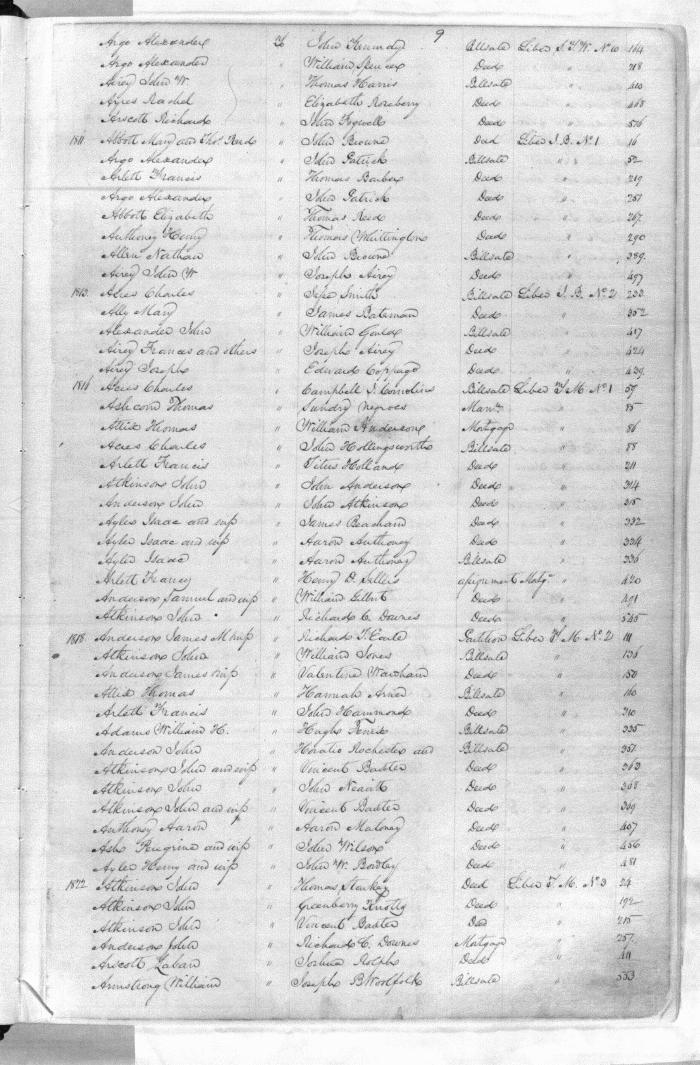 9
Argo Alexander To John Kennedy Billsale Liber J. T. W. No 10 164
Argo Alexander " William Spencer Deed " 218
Airey John W. " Thomas Harris Billsale " 410
Ayres Rachel " Elizabeth Roseberry Deed " 468
Ariscott Richard " John Fogwell Deed " 576
1811 Abbott Mary and Thos. Reed " John Browne Deed Liber J. B. No 1 16
Argo Alexander " John Patrick Billsale " 52
Arlett Francis " Thomas Barber Deed " 219
Argo Alexander " John Patrick Deed " 251
Abbott Elizabeth " Thomas Reed Deed " 267
Anthoney Henry " Thomas Whittington Deed " 290
Allen Nathan " John Browne Billsale " 389
Airey John W " Joseph Airey Deed " 497
1813 Acres Charles " Smith Billsale Liber J. B. No 2 233
Ally Mary " James Bateman Deed " 352
Alexander John " William Billsale " 417
Airey Frances and others " Joseph Airey Deed " 424
Airey Joseph " Edward Coppage Deed " 439
1816 Acres Charles " Campbell J. Cornelius Billsale Liber T. M. No 1 59
Ashcom Thomas " Sundry Negroes Man. " 85
Attix Thomas " William Anderson Mortgage " 86
Acres Charles " John Hollingsworth Billsale " 88
Arlett Francis " Titus Holland Deed " 211
Atkinson John " John Anderson Deed " 314
Anderson John " John Atkinson Deed " 315
Ayler Isaac and wife " James Beacham Deed " 332
Ayler Isaac and wife " Aaron Anthoney Deed " 334
Ayler Isaac " Aaron Anthoney Billsale " 336
Arlett Francis " Henry D. Sellers assignment Motg. " 420
Anderson Samuel and wife " William Gilbert Deed " 491
Atkinson John " Richard C. Downes Deed " 545
1818 Anderson James M wife " Richard T. Earle Partition Liber T. M. No 2 111
Atkinson John " William Jones Billsale " 136
Anderson James wife " Valentine Deed " 150
Attix Thomas " Hannah Billsale " 160
Arlett Francis " John Hammond Deed " 210
Adams William H. " Hugh Billsale " 335
Anderson John " Horatio Rochester and Billsale " 351
Atkinson John and wife " Vincent Baxter Deed " 363
Atkinson John " John Deed " 368
Atkinson John and wife " Vincent Baxter Deed " 369
Anthoney Aaron " Aaron Maloney Deed " 407
Ash Peregrine and wife " John Wilson Deed " 456
Ayler Henry and wife " John W. Bordley Deed " 481
1822 Atkinson John " Thomas Starkey Deed Liber T. M. No 3 24
Atkinson John " Greenberry Knotts Deed " 192
Atkinson John " Vincent Baxter Deed " 215
Anderson John " Richard C. Downes Mortgage " 257
Ariscott Laban " Joshua Rolph Deed " 411
Armstrong William " Joseph B. Woolfolk Billsale " 533